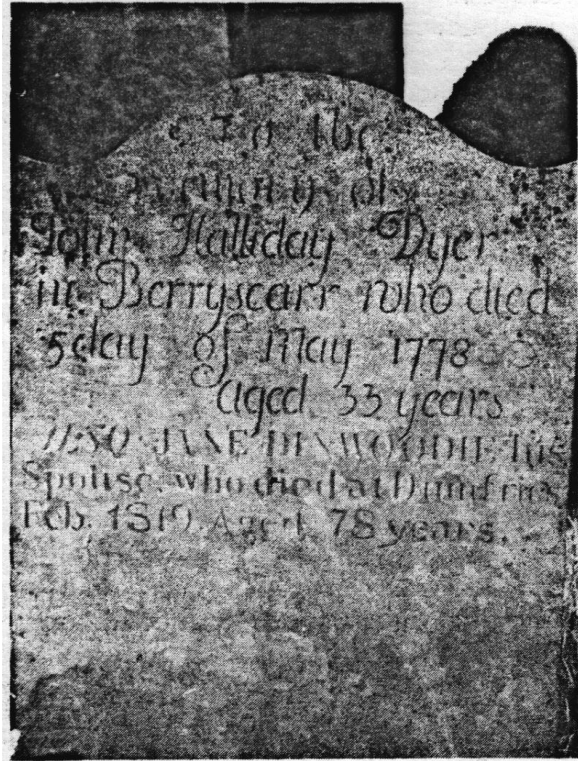 To the
memory of
John Halliday Dyer
in Berryscarr who died
5 day of May 1778
aged 33 years
ALSO JANE DINWOODIE his
Spouse, who died at Dumfries
Feb. 1819. Aged 78 years.